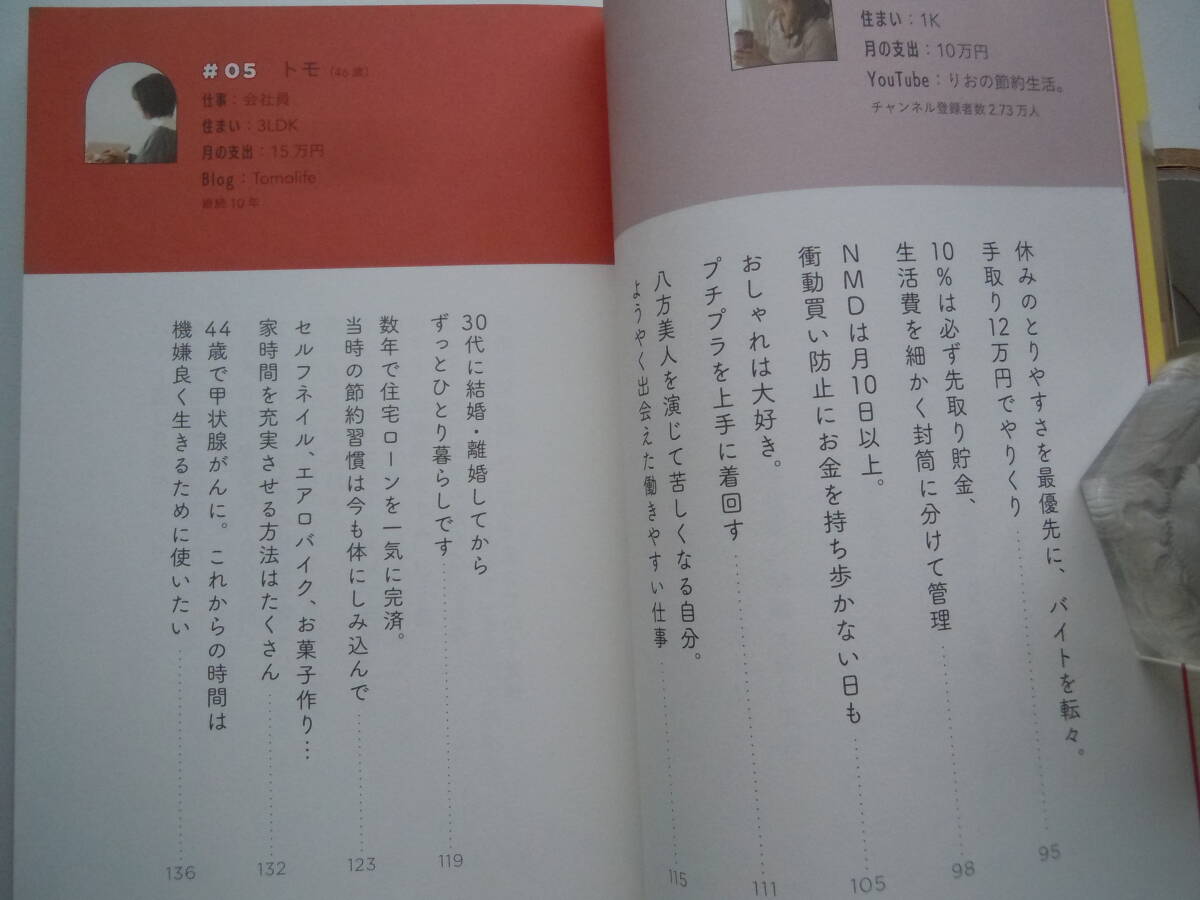 住まい：1K
月の支出：10万円
YouTube：りおの節約生活。
チャンネル登録者数2.73万人
休みのとりやすさを最優先に、バイトを転々。
手取り12万円でやりくり……95
10％は必ず先取り貯金、
生活費を細かく封筒に分けて管理……98
NMDは月10日以上。
衝動買い防止にお金を持ち歩かない日も……105
おしゃれは大好き。
プチプラを上手に着回す……111
八方美人を演じて苦しくなる自分。
ようやく出会えた働きやすい仕事……115
#05 トモ（46歳）
仕事：会社員
住まい：3LDK
月の支出：15万円
Blog：Tomolife
継続10年
30代に結婚・離婚してから
ずっとひとり暮らしです……119
数年で住宅ローンを一気に完済。
当時の節約習慣は今も体にしみ込んで……123
セルフネイル、エアロバイク、お菓子作り…
家時間を充実させる方法はたくさん……132
44歳で甲状腺がんに。これからの時間は
機嫌良く生きるために使いたい……136